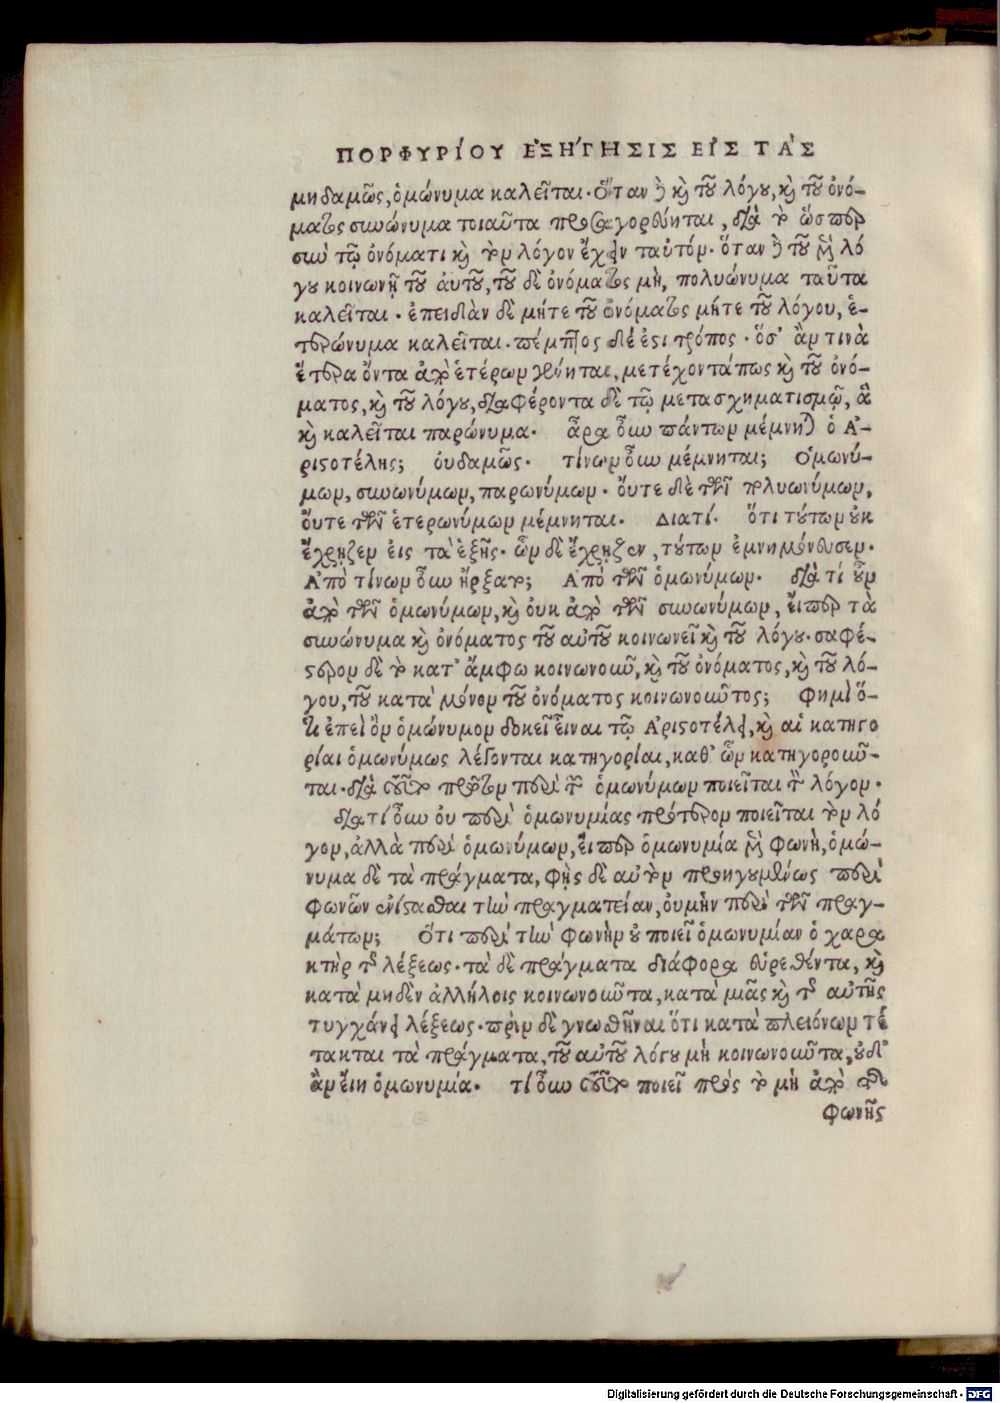 ΠΟΡΦΥΡΊΟΥ ἘΞΉΓΗΣΙΣ ΕἸΣ ΤᾺΣ
μηδαμῶς, ὁμώνυμα καλεῖται. Ὅταν δὲ καὶ τοῦ λόγου, καὶ τοῦ ὀνό-
ματος συνώνυμα τοιαῦτα προσαγορεύηται, διὰ τὸ ὥσπερ
σὺν τῷ ὀνόματι καὶ τὸν λόγον ἔχειν ταὐτόν. ὅταν δὲ τοῦ μὲν λό
γου κοινωνῇ τοῦ ἀυτοῦ, τοῦ δὲ ὀνόματος μὴ, πολυώνυμα ταῦτα
καλεῖται. ἐπειδὰν δὲ μήτε τοῦ ὀνόματος μήτε τοῦ λόγου, ἑ-
τερώνυμα καλεῖται. πέμπτος δέ ἐστι τρόπος. ὅσ' ἂν τινὰ
ἕτερα ὄντα ἀπὸ ἑτέρων γένηται, μετέχοντά πως καὶ τοῦ ὀνό-
ματος, καὶ τοῦ λόγου, διαφέροντα δὲ τῷ μετασχηματισμῷ, ἃ
καὶ καλεῖται παρώνυμα. ἆρα οὖν πάντων μέμνηται ὁ Ἀ-
ριστοτέλης; ὀυδαμῶς. τίνων οὖν μέμνηται; Ὁμωνύ-
μων, συνωνύμων, παρωνύμων. ὄυτε δὲ τῶν πολυωνύμων,
ὄυτε τῶν ἑτερωνύμων μέμνηται. Διατί. ὅτι τούτων οὐκ
ἔχρῃζεν ἐις τὰ ἑξῆς. ὧν δὲ ἔχρῃζεν, τούτων ἐμνημόνευσεν.
Ἀπὸ τίνων οὖν ἤρξατο; Ἀπὸ τῶν ὁμωνύμων. διὰ τί οὖν
ἀπὸ τῶν ὁμωνύμων, καὶ ὀυκ ἀπὸ τῶν συνωνύμων, ἔιπερ τὰ
συνώνυμα καὶ ὀνόματος τοῦ αὐτοῦ κοινωνεῖ καὶ τοῦ λόγου. σαφέ-
στερον δὲ τὸ κατ' ἄμφω κοινωνοῦν, καὶ τοῦ ὀνόματος, καὶ τοῦ λό-
γου, τοῦ κατὰ μόνον τοῦ ὀνόματος κοινωνοῦντος; Φημὶ ὅ-
τι ἐπεὶ ὂν ὁμώνυμον δοκεῖ εἶναι τῷ Ἀριστοτέλει, καὶ αἱ κατηγο
ρίαι ὁμωνύμως λέγονται κατηγορίαι, καθ' ὧν κατηγοροῦν-
ται. διὰ τοῦτο πρῶτον περὶ τῶν ὁμωνύμων ποιεῖται τὸν λόγον.
διατί οὖν ὀυ περὶ ὁμωνυμίας πρότερον ποιεῖται τὸν λό
γον, ἀλλὰ περὶ ὁμωνύμων, ἔιπερ ὁμωνυμία μὲν φωνὴ, ὁμώ-
νυμα δὲ τὰ πράγματα, φῂς δὲ αὐτὸν προηγουμένως περὶ
φωνῶν ἐνίστασθαι τὴν πραγματείαν, ὀυμὴν περὶ τῶν πραγ-
μάτων; Ὅτι περὶ τὴν φωνὴν οὐ ποιεῖ ὁμωνυμίαν ὁ χαρα
κτὴρ τῆς λέξεως. τὰ δὲ πράγματα διάφορα εὑρεθέντα, καὶ
κατὰ μηδὲν ἀλλήλοις κοινωνοῦντα, κατὰ μιᾶς καὶ τῆς αὐτῆς
τυγχάνει λέξεως. πρὶν δὲ γνωσθῆναι ὅτι κατὰ πλειόνων τέ
τακται τὰ πράγματα, τοῦ αὐτοῦ λόγου μὴ κοινωνοῦντα, οὐδ'
ἂν ἔιη ὁμωνυμία. τί οὖν τοῦτο ποιεῖ πρὸς τὸ μὴ ἀπὸ τῆς
φωνῆς
Digitalisierung gefördert durch die Deutsche Forschungsgemeinschaft - DFG